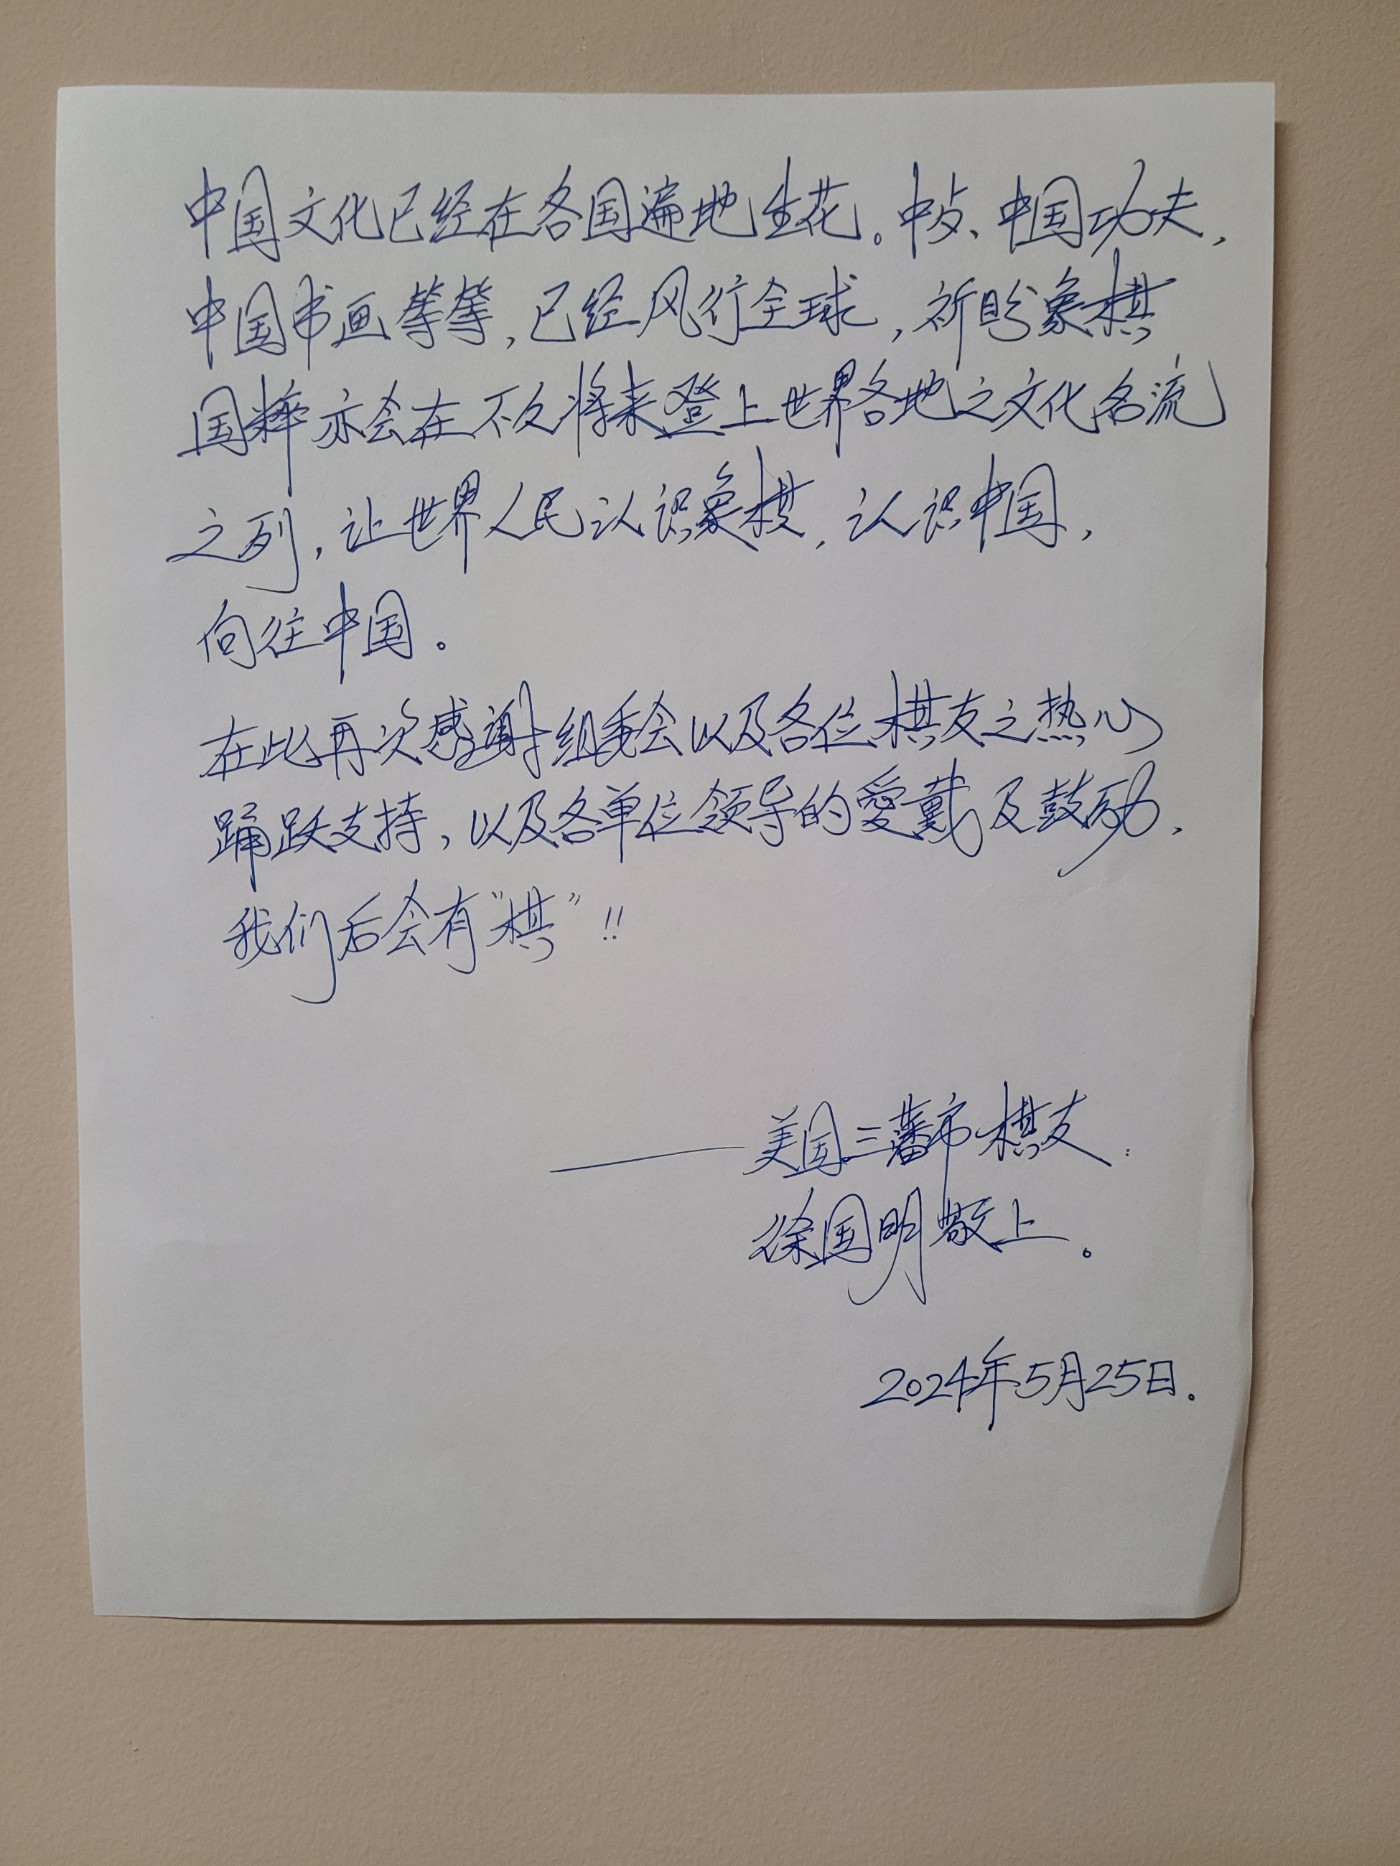 中国文化已经在各国遍地生花。中点、中国功夫，
中国书画等等，已经风行全球，祈盼象棋
国粹亦会在不久将来登上世界各地之文化名流
之列，让世界人民认识象棋，认识中国，
向往中国。
在此再次感謝组委会以及各位棋友之热心
踊跃支持，以及各单位领导的愛戴及鼓励，
我们后会有“棋”!!
——美国三藩市棋友：
徐国明敬上。
2024年5月25日.